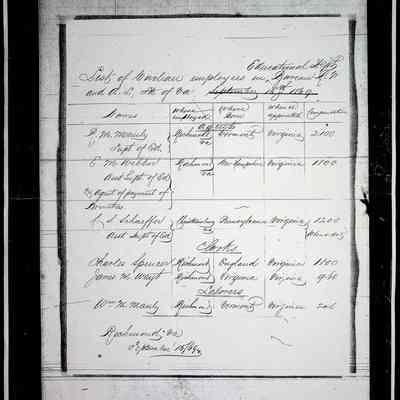 Educational Dept
List of Civilian employees in Bureau R. F.
and A. L. of Va September 15th 1869
Names Where employed Where Born Whence appointed Compensation
Agents
R. M. Manly Richmond Va Vermont Virginia 2100
Supt of Ed.
Richmond Va New Hampshire Virginia 1800
Asst Supt of Ed
Agent of payment of
Bounties
Pennsylvania Virginia 1200
Asst Supt of Ed
Clerks
Charles Spencer Richmond England Virginia
James M. Richmond Virginia Virginia
Laborers
Wm M. Manly Richmond Vermont Virginia
Richmond Va
September 15/69